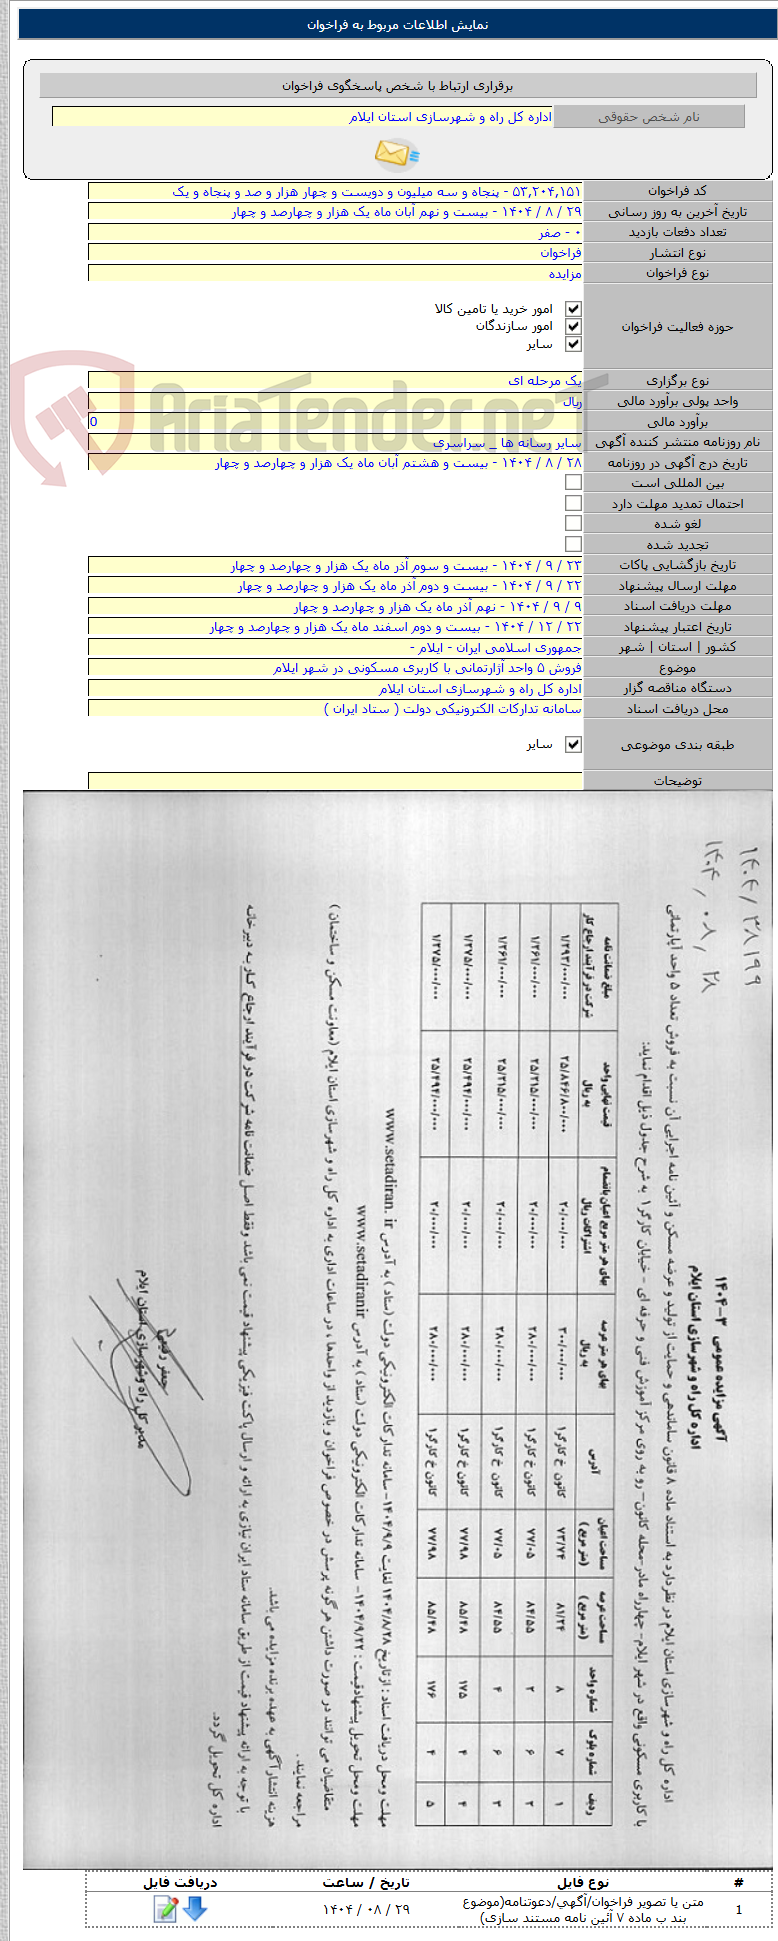 نمایش اطلاعات مربوط به فراخوان
برقراری ارتباط با شخص پاسخگوی فراخوان
نام شخص حقوقی اداره کل راه و شهرسازی استان ایلام
کد فراخوان ۵۳,۲۰۴,۱۵۱ - پنجاه و سه میلیون و دویست و چهار هزار و صد و پنجاه و یک
تاریخ آخرین به روز رسانی ۲۹ / ۸ / ۱۴۰۴ - بیست و نهم آبان ماه یک هزار و چهارصد و چهار
تعداد دفعات بازدید ۰ - صفر
نوع انتشار فراخوان
نوع فراخوان مزایده
حوزه فعالیت فراخوان
امور خرید یا تامین کالا
امور سازندگان
سایر
نوع برگزاری یک مرحله ای
واحد پولی برآورد مالی ریال
برآورد مالی 0
نام روزنامه منتشر کننده آگهی سایر رسانه ها _ سراسری
تاریخ درج آگهی در روزنامه ۲۸ / ۸ / ۱۴۰۴ - بیست و هشتم آبان ماه یک هزار و چهارصد و چهار
AriaTender.neT
بین المللی است
احتمال تمدید مهلت دارد
لغو شده
تجدید شده
تاریخ بازگشایی پاکات ۲۳ / ۹ / ۱۴۰۴ - بیست و سوم آذر ماه یک هزار و چهارصد و چهار
مهلت ارسال پیشنهاد ۲۲ / ۹ / ۱۴۰۴ - بیست و دوم آذر ماه یک هزار و چهارصد و چهار
مهلت دریافت اسناد ۹ / ۹ / ۱۴۰۴ - نهم آذر ماه یک هزار و چهارصد و چهار
تاریخ اعتبار پیشنهاد ۲۲ / ۱۲ / ۱۴۰۴ - بیست و دوم اسفند ماه یک هزار و چهارصد و چهار
کشور | استان | شهر جمهوری اسلامی ایران - ایلام -
موضوع فروش ۵ واحد آژارتمانی با کاربری مسکونی در شهر ایلام
دستگاه مناقصه گزار اداره کل راه و شهرسازی استان ایلام
محل دریافت اسناد سامانه تدارکات الکترونیکی دولت ( ستاد ایران )
طبقه بندی موضوعی سایر
توضیحات
۱۴۰۴/۳۸۱۹۹
۱۴۰۴/۰۸/۲۸
آگهی مزایده عمومی ۳-۱۴۰۴
اداره کل راه و شهرسازی استان ایلام
اداره کل راه و شهرسازی استان ایلام در نظر دارد به استناد ماده ۸ قانون ساماندهی و حمایت از تولید و عرضه مسکن و آئین نامه اجرایی آن نسبت به فروش تعداد ۵ واحد آپارتمانی
با کاربری مسکونی واقع در شهر ایلام- چهارراه مادر-محله کانون– رو به روی مرکز آموزش فنی و حرفه ای - خیابان کارگر۱ به شرح جدول ذیل اقدام نماید:
ردیف شماره بلوک شماره واحد مساحت عرصه (متر مربع ) مساحت اعیان (متر مربع ) آدرس بهای هر متر عرصه به ریال بهای هر متر مربع اعیان باانضمام اشتراکات ریال قیمت نهایی واحد به ریال مبلغ ضمانت نامه شرکت در فرآیند ارجاع کار
۱ ۷ ۸ ۸۱/۲۴ ۷۳/۷۴ کانون خ کارگر۱ ۳۰۰/۰۰۰/۰۰۰ ۲۰/۰۰۰/۰۰۰ ۲۵/۸۴۶/۸۰۰/۰۰۰ ۱/۲۹۳/۰۰۰/۰۰۰
۲ ۶ ۲ ۸۴/۵۵ ۷۷/۰۵ کانون خ کارگر۱ ۲۸۰/۰۰۰/۰۰۰ ۲۰/۰۰۰/۰۰۰ ۲۵/۲۱۵/۰۰۰/۰۰۰ ۱/۲۶۱/۰۰۰/۰۰۰
۳ ۶ ۴ ۸۴/۵۵ ۷۷/۰۵ کانون خ کارگر۱ ۲۸۰/۰۰۰/۰۰۰ ۲۰/۰۰۰/۰۰۰ ۲۵/۲۱۵/۰۰۰/۰۰۰ ۱/۲۶۱/۰۰۰/۰۰۰
۴ ۴ ۱۷۵ ۸۵/۴۸ ۷۷/۹۸ کانون خ کارگر۱ ۲۸۰/۰۰۰/۰۰۰ ۲۰/۰۰۰/۰۰۰ ۲۵/۴۹۴/۰۰۰/۰۰۰ ۱/۲۷۵/۰۰۰/۰۰۰
۵ ۴ ۱۷۶ ۸۵/۴۸ ۷۷/۹۸ کانون خ کارگر۱ ۲۸۰/۰۰۰/۰۰۰ ۲۰/۰۰۰/۰۰۰ ۲۵/۴۹۴/۰۰۰/۰۰۰ ۱/۲۷۵/۰۰۰/۰۰۰
مهلت ومحل دریافت اسناد : ازتاریخ ۱۴۰۴/۸/۲۸ لغایت ۱۴۰۴/۹/۹– سامانه تدارکات الکترونیکی دولت (ستاد ) به آدرس www.setadiran. ir
مهلت ومحل تحویل پیشنهادقیمت : ۱۴۰۴/۹/۲۲– سامانه تدارکات الکترونیکی دولت (ستاد ) به آدرس www.setadiranir
متقاضیان می توانند در صورت داشتن هر گونه پرسش در خصوص فراخوان و بازدید از واحدها ، در ساعات اداری به اداره کل راه و شهرسازی استان ایلام (معاونت مسکن و ساختمان )
مراجعه نمایند .
هزینه انتشارآگهی به عهده برنده مزایده می باشد.
با توجه به ارائه پیشنهاد قیمت از طریق سامانه ستاد ایران نیازی به ارائه و ارسال پاکت فیزیکی پیشنهاد قیمت نمی باشد وفقط اصل ضمانت نامه شرکت در فرآیند ارجاع کار به دبیرخانه
اداره کل تحویل گردد.
جعفر رفیعی
مدیر کل راه وشهرسازی استان ایلام
# نوع فایل تاریخ / ساعت دریافت فایل
1 متن یا تصویر فراخوان/آگهي/دعوتنامه(موضوع بند ب ماده ۷ آئین نامه مستند سازی) ۲۹ / ۰۸ / ۱۴۰۴